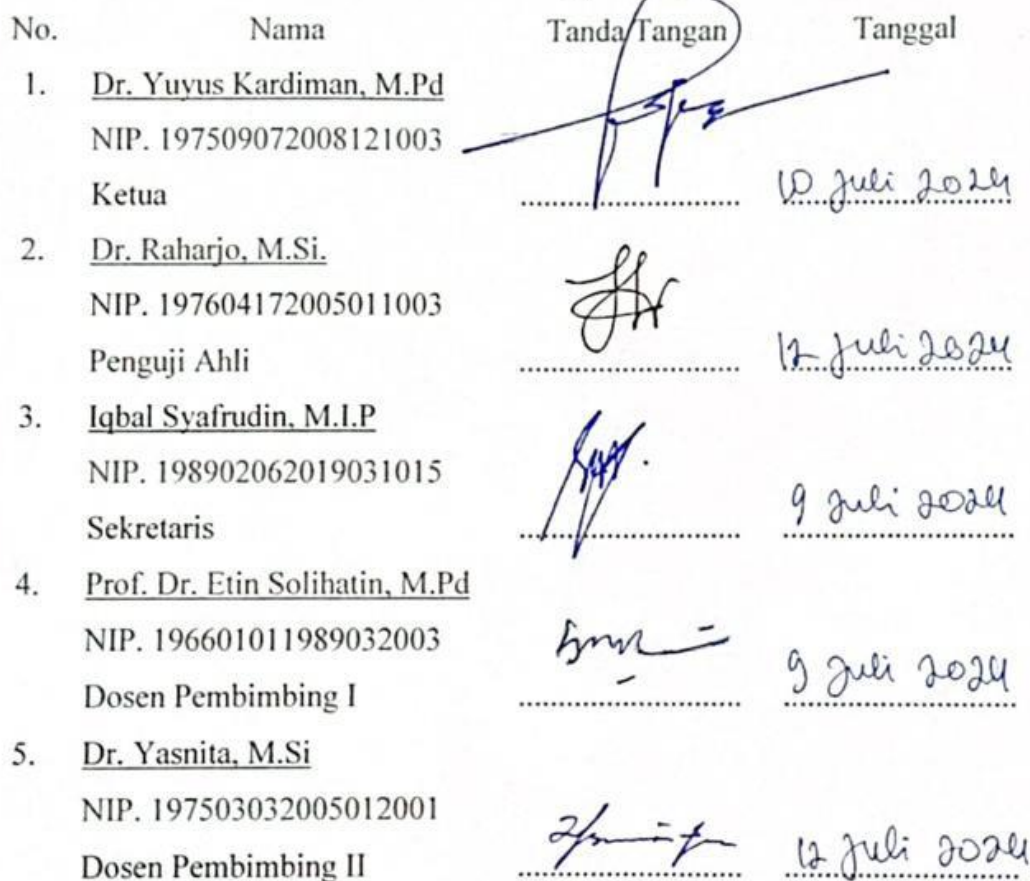 No. Nama Tanda Tangan Tanggal
1. Dr. Yuyus Kardiman, M.Pd
NIP. 197509072008121003
Ketua 10 Juli 2024
2. Dr. Raharjo, M.Si.
NIP. 197604172005011003
Penguji Ahli 12 Juli 2024
3. Iqbal Syafrudin, M.I.P
NIP. 198902062019031015
Sekretaris 9 Juli 2024
4. Prof. Dr. Etin Solihatin, M.Pd
NIP. 196601011989032003
Dosen Pembimbing I 9 Juli 2024
5. Dr. Yasnita, M.Si
NIP. 197503032005012001
Dosen Pembimbing II 12 Juli 2024